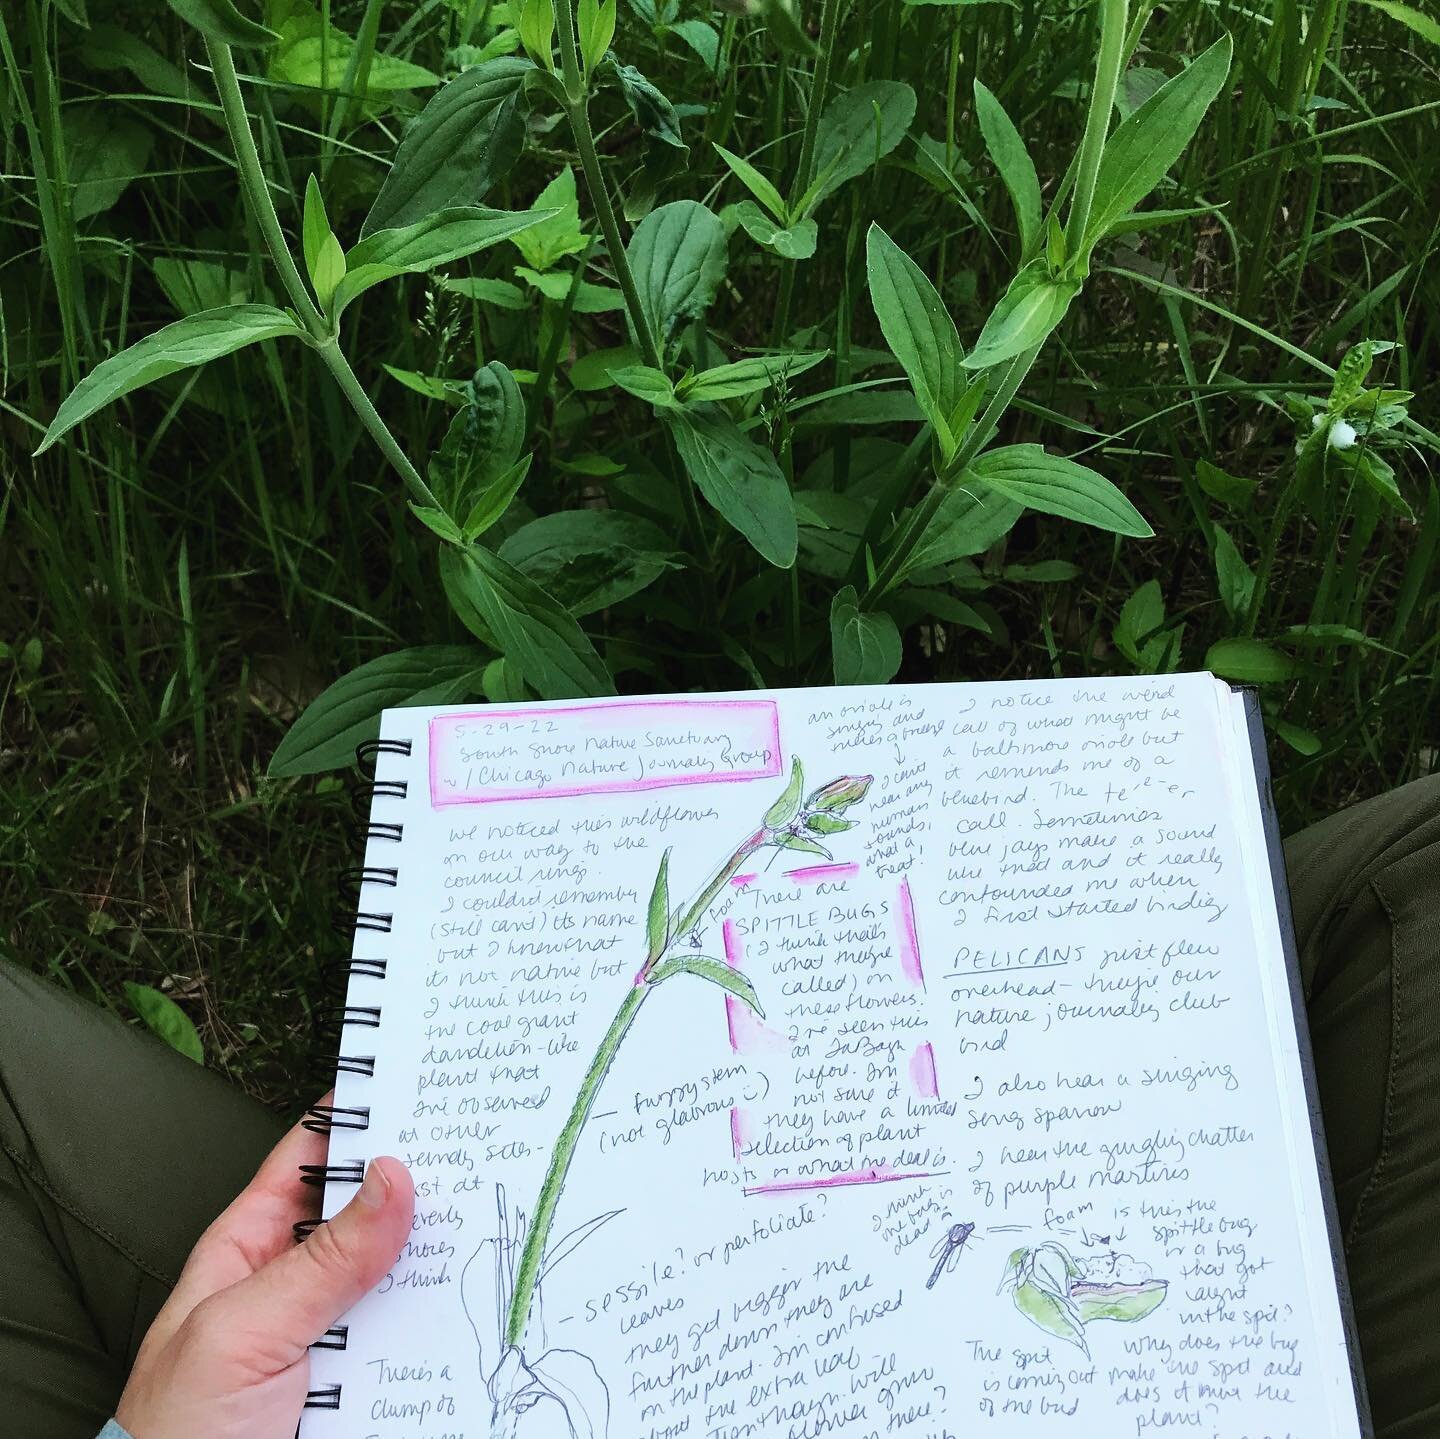 5-29-22
South Shore Nature Sanctuary
w/ Chicago Nature Journaling Group
we noticed this wildflower
on our way to the
council rings.
I couldn't remember
(still can't) its name
but I know that
it's not native but
I think this is
the cool giant
dandelion-like
plant that
I've observed
at other
sandy sites-
at
Shores
I think
There's a
clump of
an oriole is
singing and
there's a breeze
I can't
hear any
human
sounds,
what a
treat!
foam
There are
SPITTLE BUGS
(I think that's
what they're
called) on
these flowers.
I've seen this
at
before. I'm
not sure if
they have a limited
selection of plant
hosts or what the deal is.
fuzzy stem
(not glabrous :)
sessile? or perfoliate?
leaves
they get bigger the
further down they are
on the plant. I'm confused
about the extra leaf-
will
flower grow
in there?
I notice the weird
call of what might be
a baltimore oriole but
it reminds me of a
bluebird. The te-e-er
call. Sometimes
blue jays make a sound
like that and it really
confounded me when
I first started birding
PELICANS just flew
overhead - they're our
nature journaling club
bird
I also hear a singing
song sparrow
I hear the gurgling chatter
of purple martins
I think
the bug is
dead
foam
is this the
spittle bug
or a bug
that got
caught
in the spit?
The spit
is coming out
of the bud
Why does the bug
make the spit and
does it hurt the
plant?